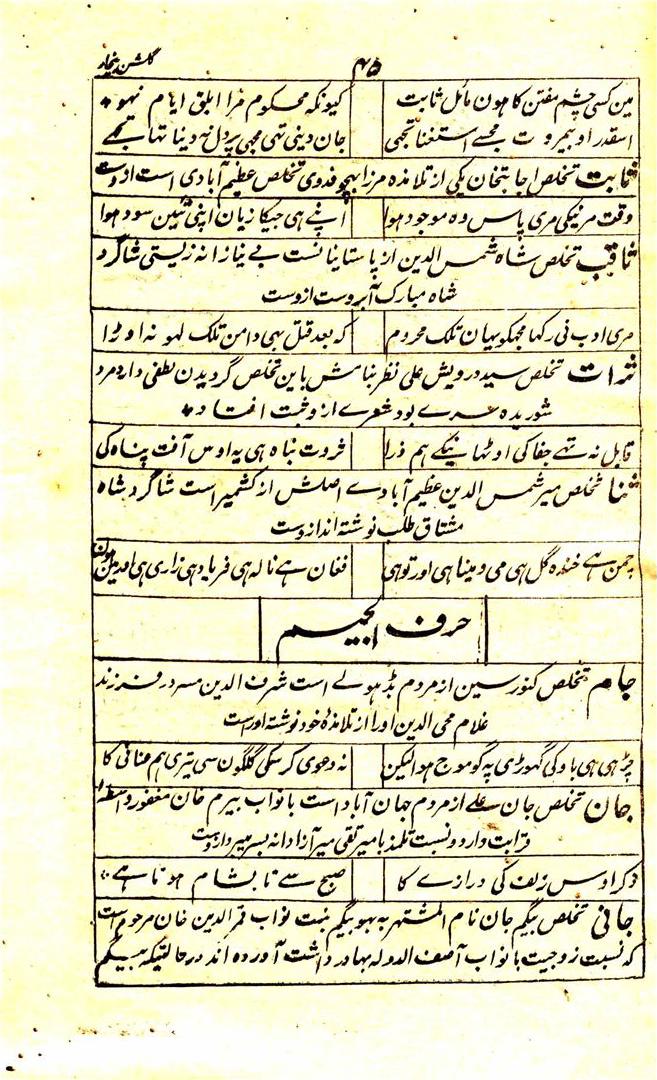 گلشن بیخار
۴۵
مین کسی چشم مفتن کا ہون مائل ثابت کیونکہ محکوم مرا ابلق ایام نہو
اسقدر او بیمروت ہے مجھسے استغنا تجہی جان دینی تہی مجہی پر دل نہ دینا تہا تجہے
ثابت تخلص اجابتخان یکی از تلامذہ مرزا بہچو فدوی تخلص عظیم آبادی است ازوست
وقت مرنیکی مری پاس وہ موجود ہوا اپنے ہی جیکا زیان اپنی تئین سود ہوا
ثاقب تخلص شاہ شمس الدین از پاستانیانست بے نیازانہ زیستی شاگرد
شاہ مبارک آبروست ازوست
مری ادب نی رکہا مجہکو یہان تلک محروم کہ بعد قتل بہی دامن تلک لہو نہ اوڑا
ثروت تخلص سید درویش علی نظر بنامش باین تخلص گردیدن لطفی دارد مرد
شوریدہ سرے بود شعرے ازو ثبت افتاد
قابل نہ تہے جفا کی اوٹہانیکے ہم ذرا ثروت نباہ ہی یہ اوس آفت پناہ کی
ثنا تخلص میر شمس الدین عظیم آبادے اصلش از کشمیر است شاگرد شاہ
مشتاق طلب نوشتہ اند ازوست
چمن ہے خندہ گل ہی می و مینا ہی اور تو ہی فغان ہے نالہ ہی فریاد ہی زاری ہی اور مین ہون
حرف الجیم
جام تخلص کنورسین از مردم بڈہولے است شرف الدین مسرور فرزند
غلام محی الدین اورا از تلامذۂ خود نوشتہ اوراست
چڑہی ہی باد کی گہوڑی پہ گو موج ہوا لیکن نہ دعوی کر سکی گلگون سی تیری ہم عنانی کا
جان تخلص جان علے از مردم جہان آباد است با نواب بیرم خان مغفور واسطۂ
قرابت دارد و نسبت تلمذ با میر تقی میر آزادانہ بسر میبرد ازوست
ذکر اوس زلف کی درازے کا صبح سے تا بشام ہوتا ہے
جانی تخلص بیگم جان نام المشتہر بہ بہو بیگم بنت نواب قمر الدین خان مرحوم است
کہ نسبت زوجیت با نواب آصف الدولہ بہادر داشت آوردہ اند در حالتیکہ بیگم